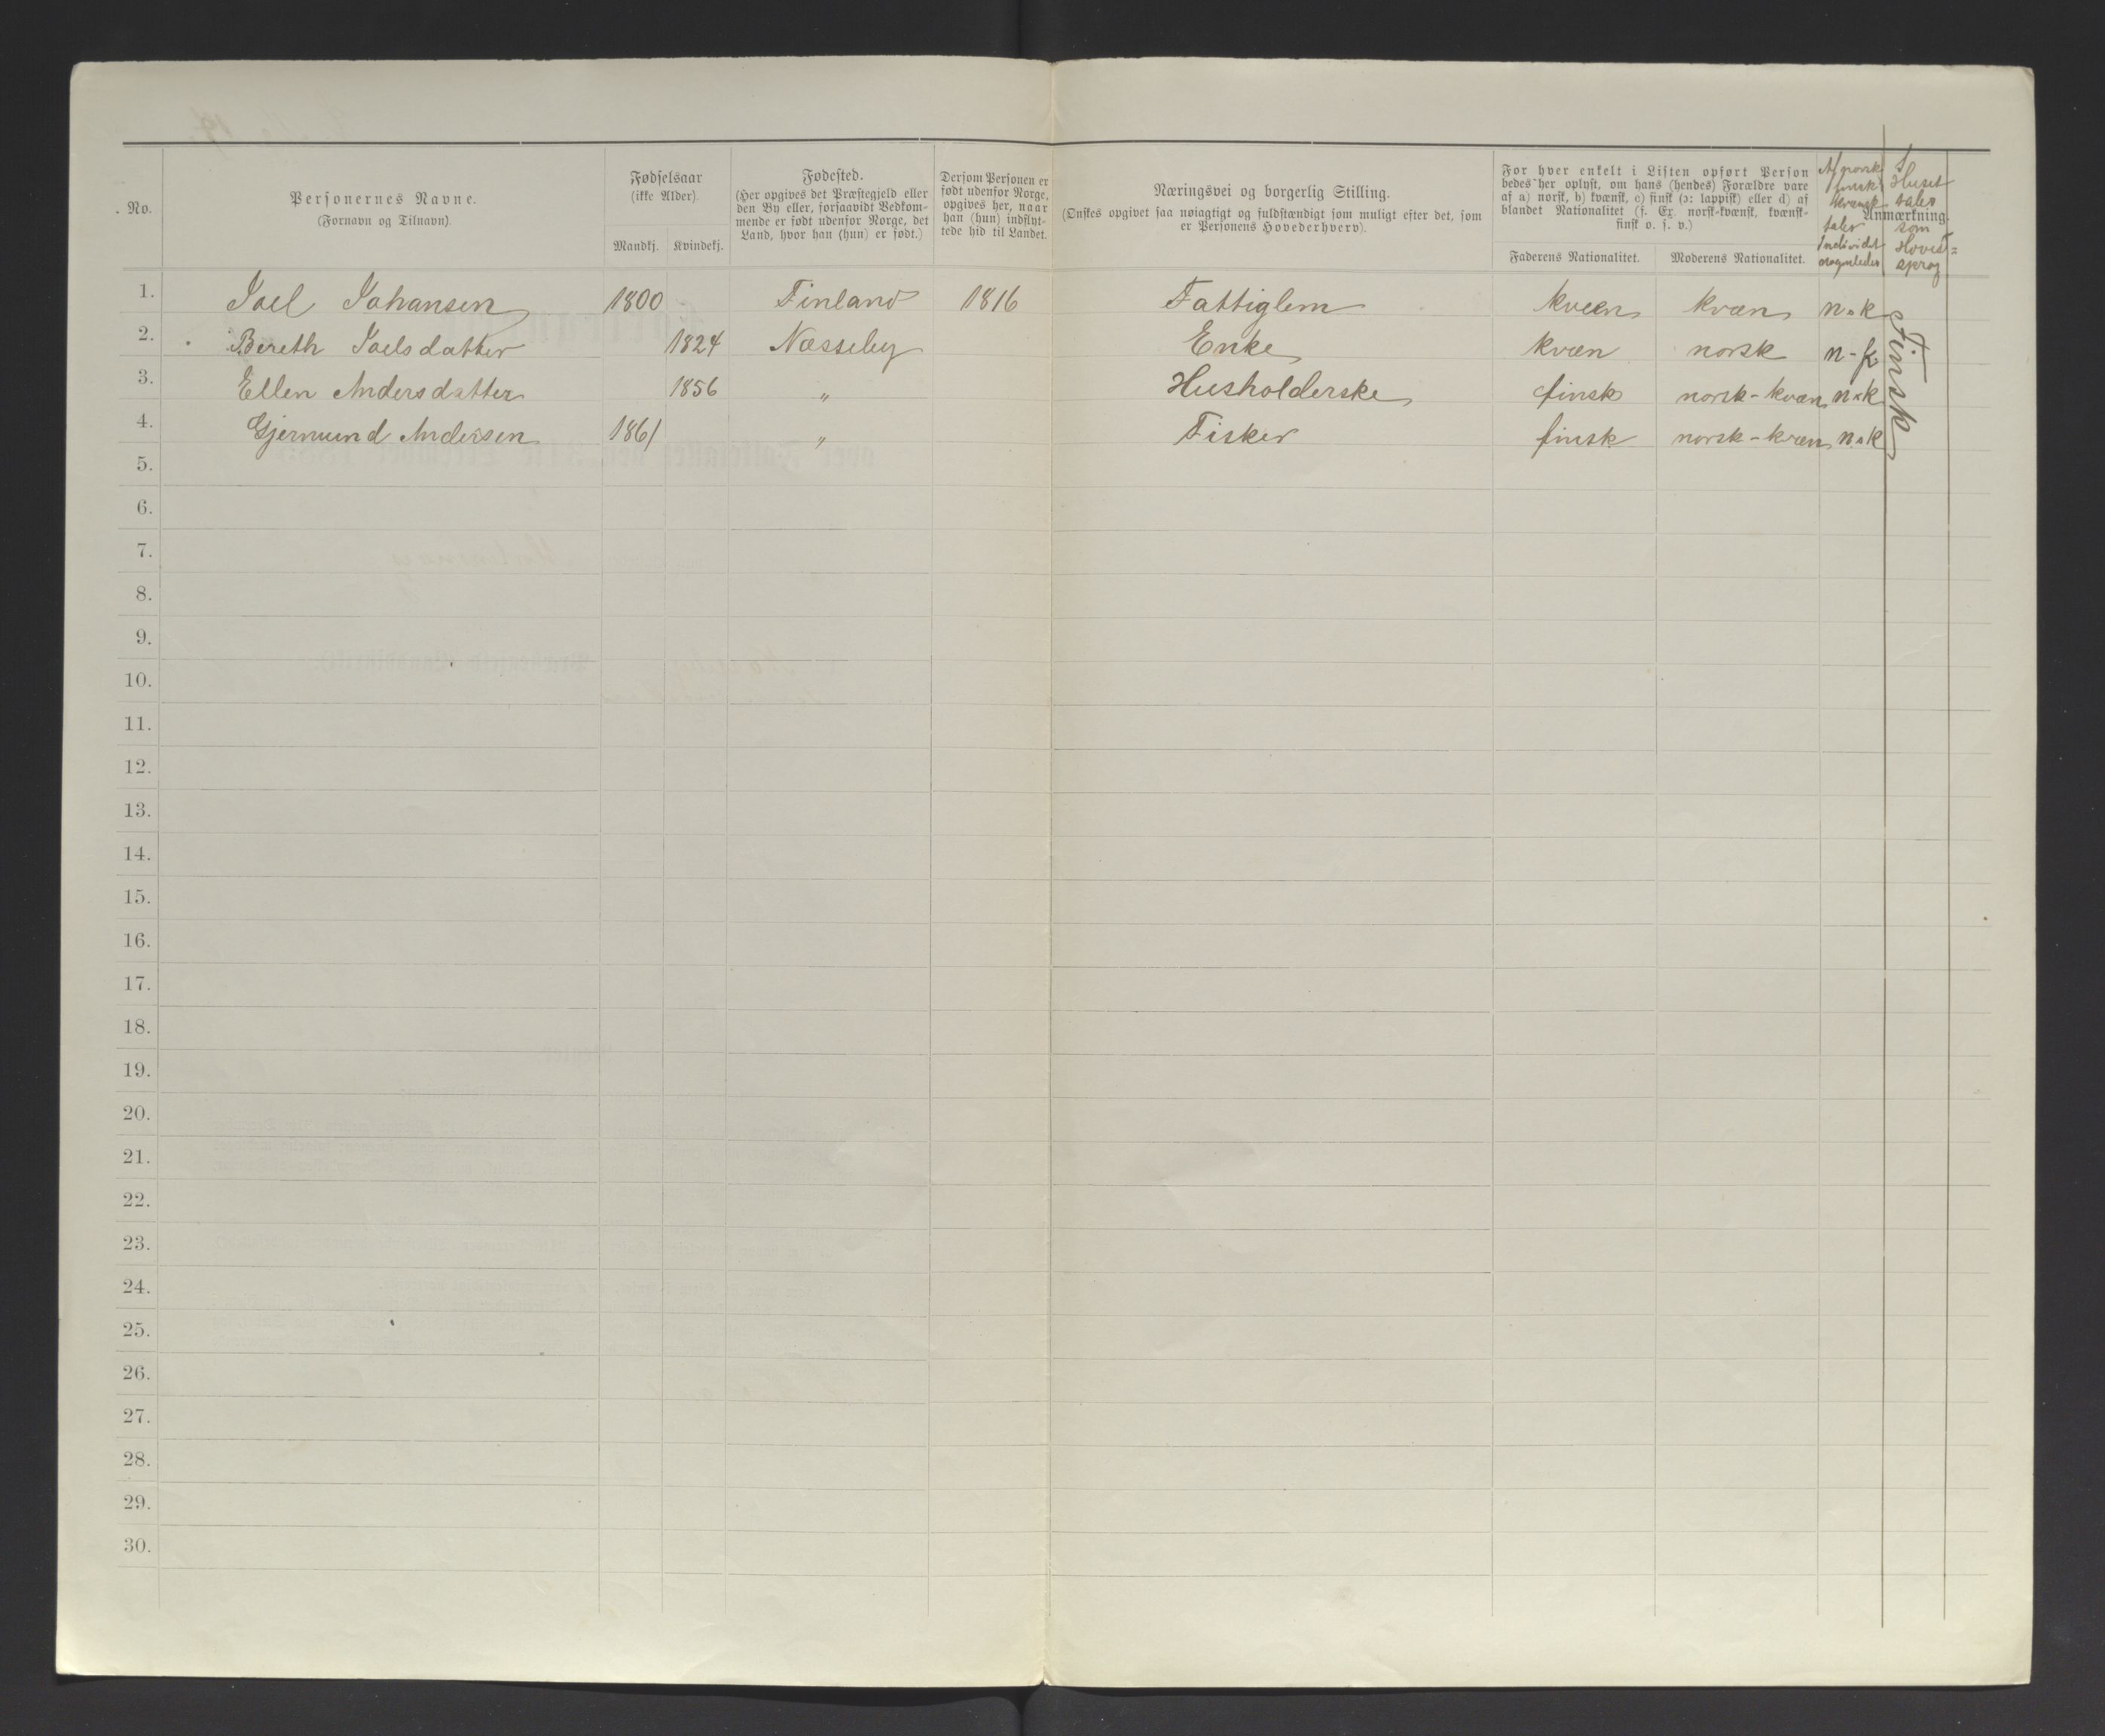 No.
Personernes Navne.
(Fornavn og Tilnavn).
Fødselsaar
(ikke Alder).
Mandkj. Kvindekj.
Fødested.
(Her opgives det Præstegjeld eller
den By eller, forsaavidt Vedkom-
mende er født udenfor Norge, det
Land, hvor han (hun) er født.)
Dersom Personen er
født udenfor Norge,
opgives her, naar
han (hun) indflyt-
tede hid til Landet.
Næringsvei og borgerlig Stilling.
(Ønskes opgivet saa nøiagtigt og fuldstændigt som muligt efter det, som
er Personens Hovederhverv).
For hver enkelt i Listen opført Person
bedes her oplyst, om hans (hendes) Forældre vare
af a) norsk, b) kvænsk, c) finsk (ɔ: lappisk) eller d) af
blandet Nationalitet (f. Ex. norsk-kvænsk, kvænsk-
finsk o. s. v.)
Faderens Nationalitet. Moderens Nationalitet.
Anmærkning.
Af norsk
finsk
kvænsk
taler
Individet
I
Huset
tales
som
Hoved=
sprog
1. Joel Johansen 1800 Finland 1816 Fattiglem kvæn kvæn n-k
2. Bereth Joelsdatter 1824 Næsseby Enke kvæn norsk n-k
3. Ellen Andersdatter 1856 " Husholderske finsk norsk-kvæn n-k
4. Gjermund Andersen 1861 " Fisker finsk norsk-kvæn n-k
Finsk
5.
6.
7.
8.
9.
10.
11.
12.
13.
14.
15.
16.
17.
18.
19.
20.
21.
22.
23.
24.
25.
26.
27.
28.
29.
30.